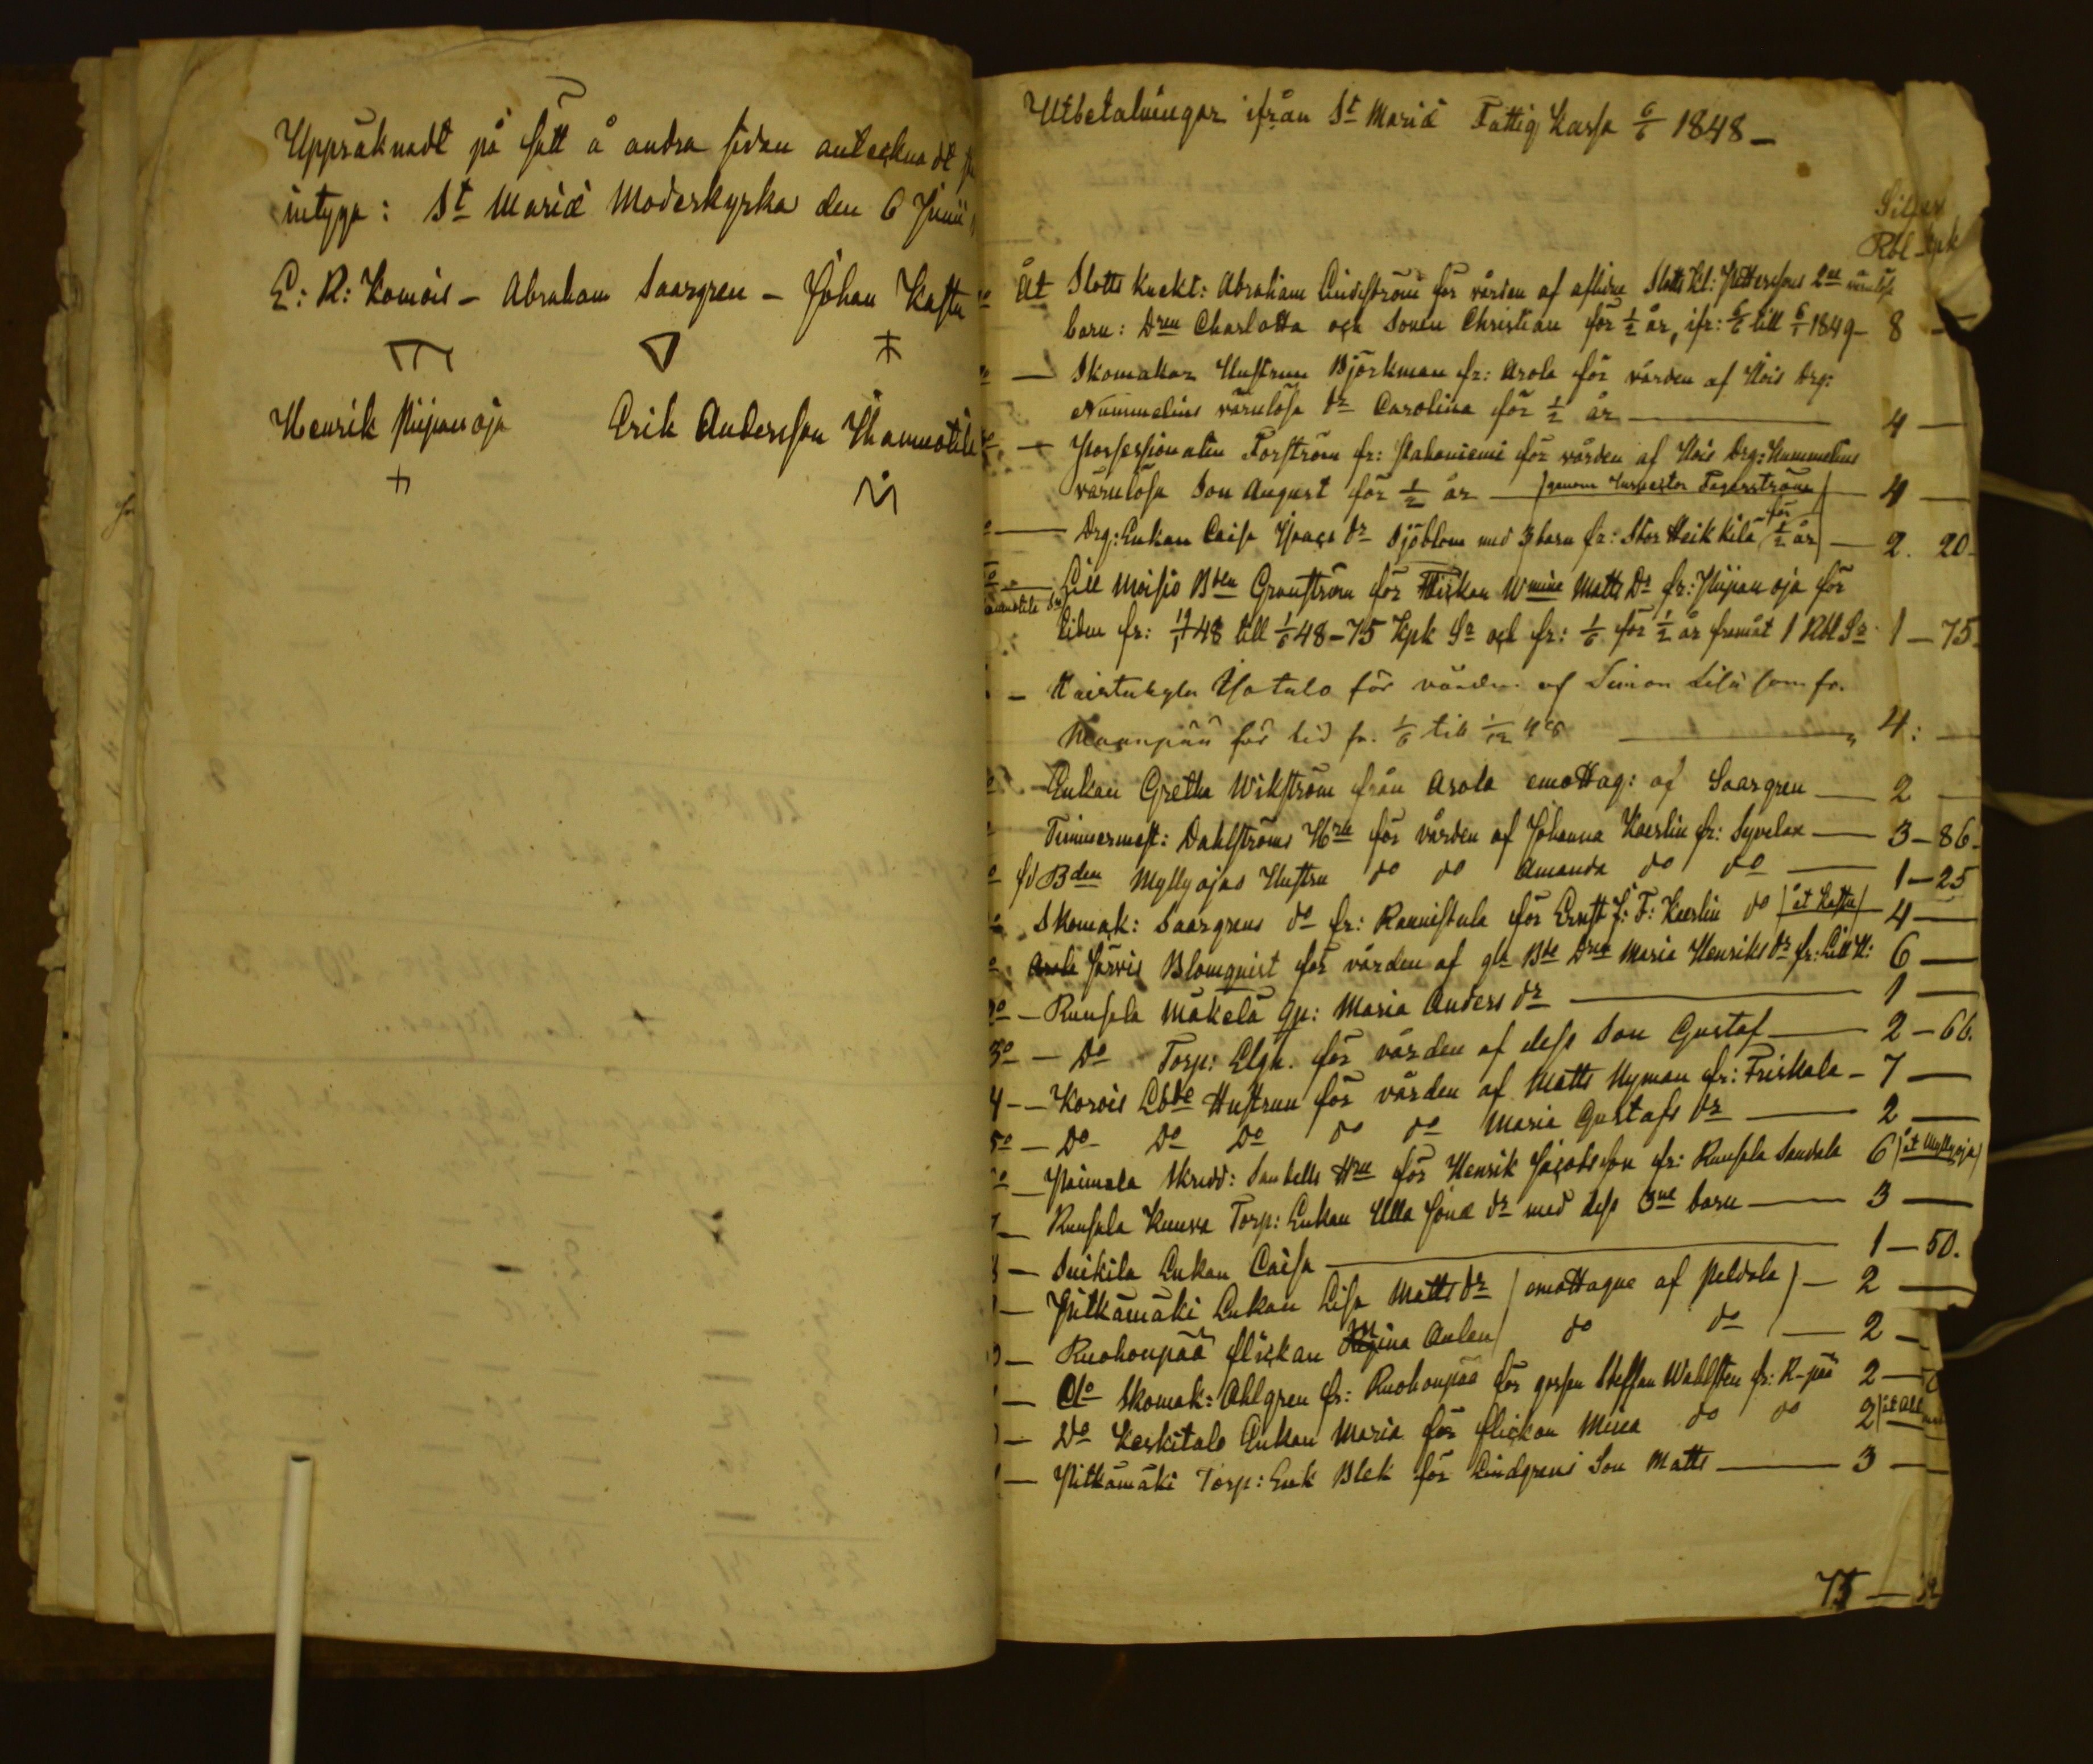 Uppräknadt på sätt å andra sidan antecknadt
intyga: St Mariæ Moderkyrka den 6 Junii
E: R: Komois - Abraham Saargren - Johan Kastu
Henrik Piipanoja Erik Andersson
Utbetalningar ifrån St Mariæ Fattig Kassa 6/6 1848 -
Silfver
Rbl - kpk
Åt Slotts Knekt: Abraham Lindström för vården af aflidne Slotts Kt: Pettersons 2ne värnlösa
barn: Dren Charlotta och Sonen Christian för 1/2 år, ifr: 6/6 till 6/1 1849 - 8 -
- Skomakar Hustrun Björkman fr: Arola för vården af Hois Drg:
Nummelins värnlösa dr Carolina för 1/2 år - 4 -
- Possessionaten Forström fr: Pahaniemi för vården af Hois Drg: Nummelins
värnlösa Son August för 1/2 år - (genom Inspector Fagerström) - 4 -
- Drg: Enkan Caisa Isaacs dr Sjöblom med 3 barn fr: Stor Heikkilä för 1/2 år - 2. 20-
Lill Moisio Bden Granström för Flickan Wmina Matts Dr fr: Piipanoja för
tiden fr: 48 till 1/6 48 - 75 Kpk Sr och fr: 1/6 för 1/2 år framåt 1 Rbl Sr 1 - 75
- för vården af Simon Lisa som fr.
för tid fr. 1/6 till 1/12 48 - 4: -
Enkan Gretha Wikström från Arola emottag: af Saargren - 2 -
Timmermest: Dahlströms Hru för vården af Johanna Kaerlin fr: Syvelax - 3 - 86-
fd Bden Myllyojas Hustru do do Amanda do do - 1 - 25
Skomak: Saargrens do fr: Raunistula för Ernst J: F: Kaerlin do (åt Kastu) 4 -
Järvis Blomqvist för vården af gla Bde Dren Maria Henriks dr fr: Lill H: 6 -
- Runsala Mäkelä Gp: Maria Anders dr - 1 -
3o - Do Torp: Elgh. för vården af dess Son Gustaf - 2 - 66.
4 - Korois Lbde Hustrun för vården af Matts Nyman fr: Friskala - 7 -
5o - Do Do Do do do Maria Gustafs dr - 2 -
- Paimala Skredd: Sandells Hru för Henrik Jacobsson fr: Runsala Sandala 6 (åt Myllyoja)
- Runsala Kuuva Torp: Enkan Ulla Jonæ dr med dess 3ne barn - 3 -
- Suikila Enkan Caisa - 1 - 50.
- Pitkämäki Enkan Lisa Matts dr (emottagne af Peldola) - 2 -
- Ruohonpää flickan Aulen do do - 2 -
- Do Skomak: Ahlgren fr: Ruohonpää för gossen Steffan Wahlsten fr: R-pää 2 -
- Do Keskitalo Enkan Maria för flickan Mina do do 2
- Pitkämäki Torp: Enk Blek för Lindgrens Son Matts - 3 -
75 -